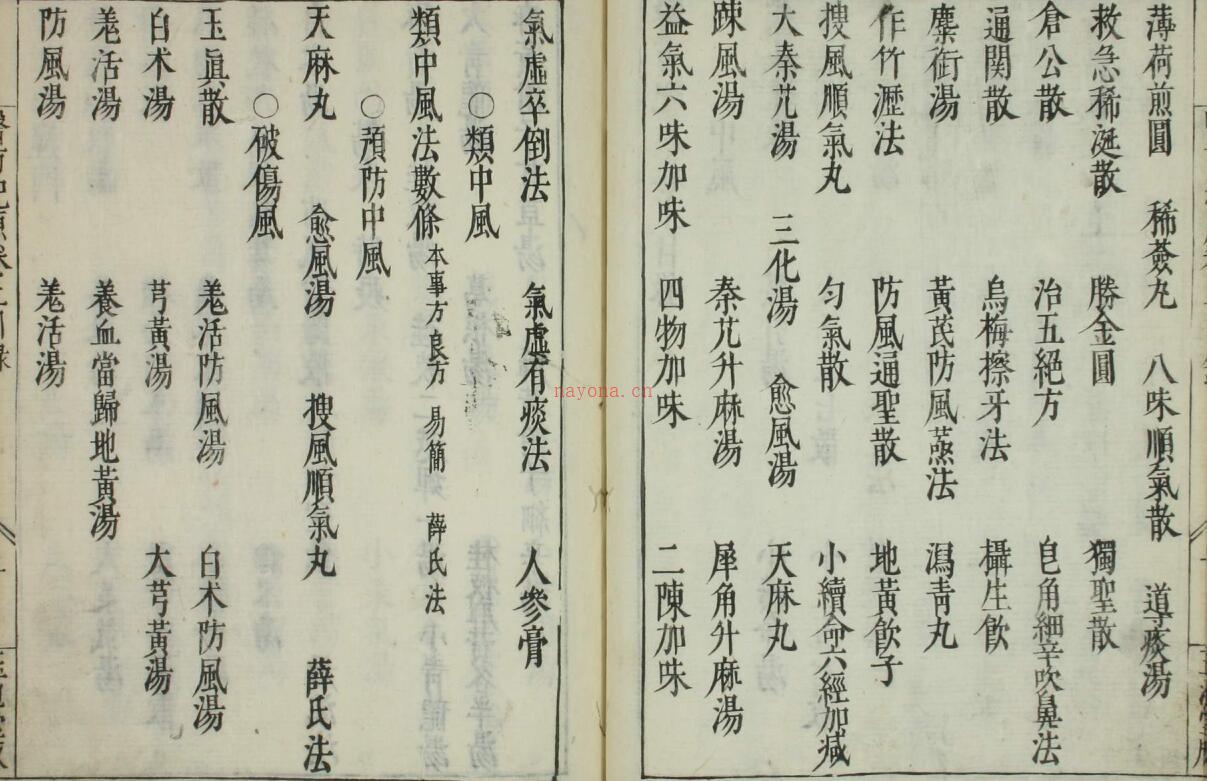 薄荷煎圓　稀薟丸　八味順氣散　導痰湯
救急稀涎散　勝金圓　獨聖散
倉公散　治五絕方　皂角細辛吹鼻法
通関散　烏梅擦牙法　攝生飲
麋銜湯　黃芪防風蒸法　瀉靑丸
作竹瀝法　防風通聖散　地黃飲子
搜風順氣丸　勻氣散　小續命六經加減
大秦艽湯　三化湯　愈風湯　天麻丸
踈風湯　秦艽升麻湯　犀角升麻湯
益氣六味加味　四物加味　二陳加味
氣虛卒倒法　氣虛有痰法　人參膏
○類中風
類中風法數條 本事方 良方 易簡 薛氏法
○預防中風
天麻丸　愈風湯　搜風順氣丸　薛氏法
○破傷風
玉眞散　羌活防風湯　白术防風湯
白术湯　芎黃湯　大芎黃湯
羌活湯　養血當歸地黃湯
防風湯　羌活湯
nayona.cn